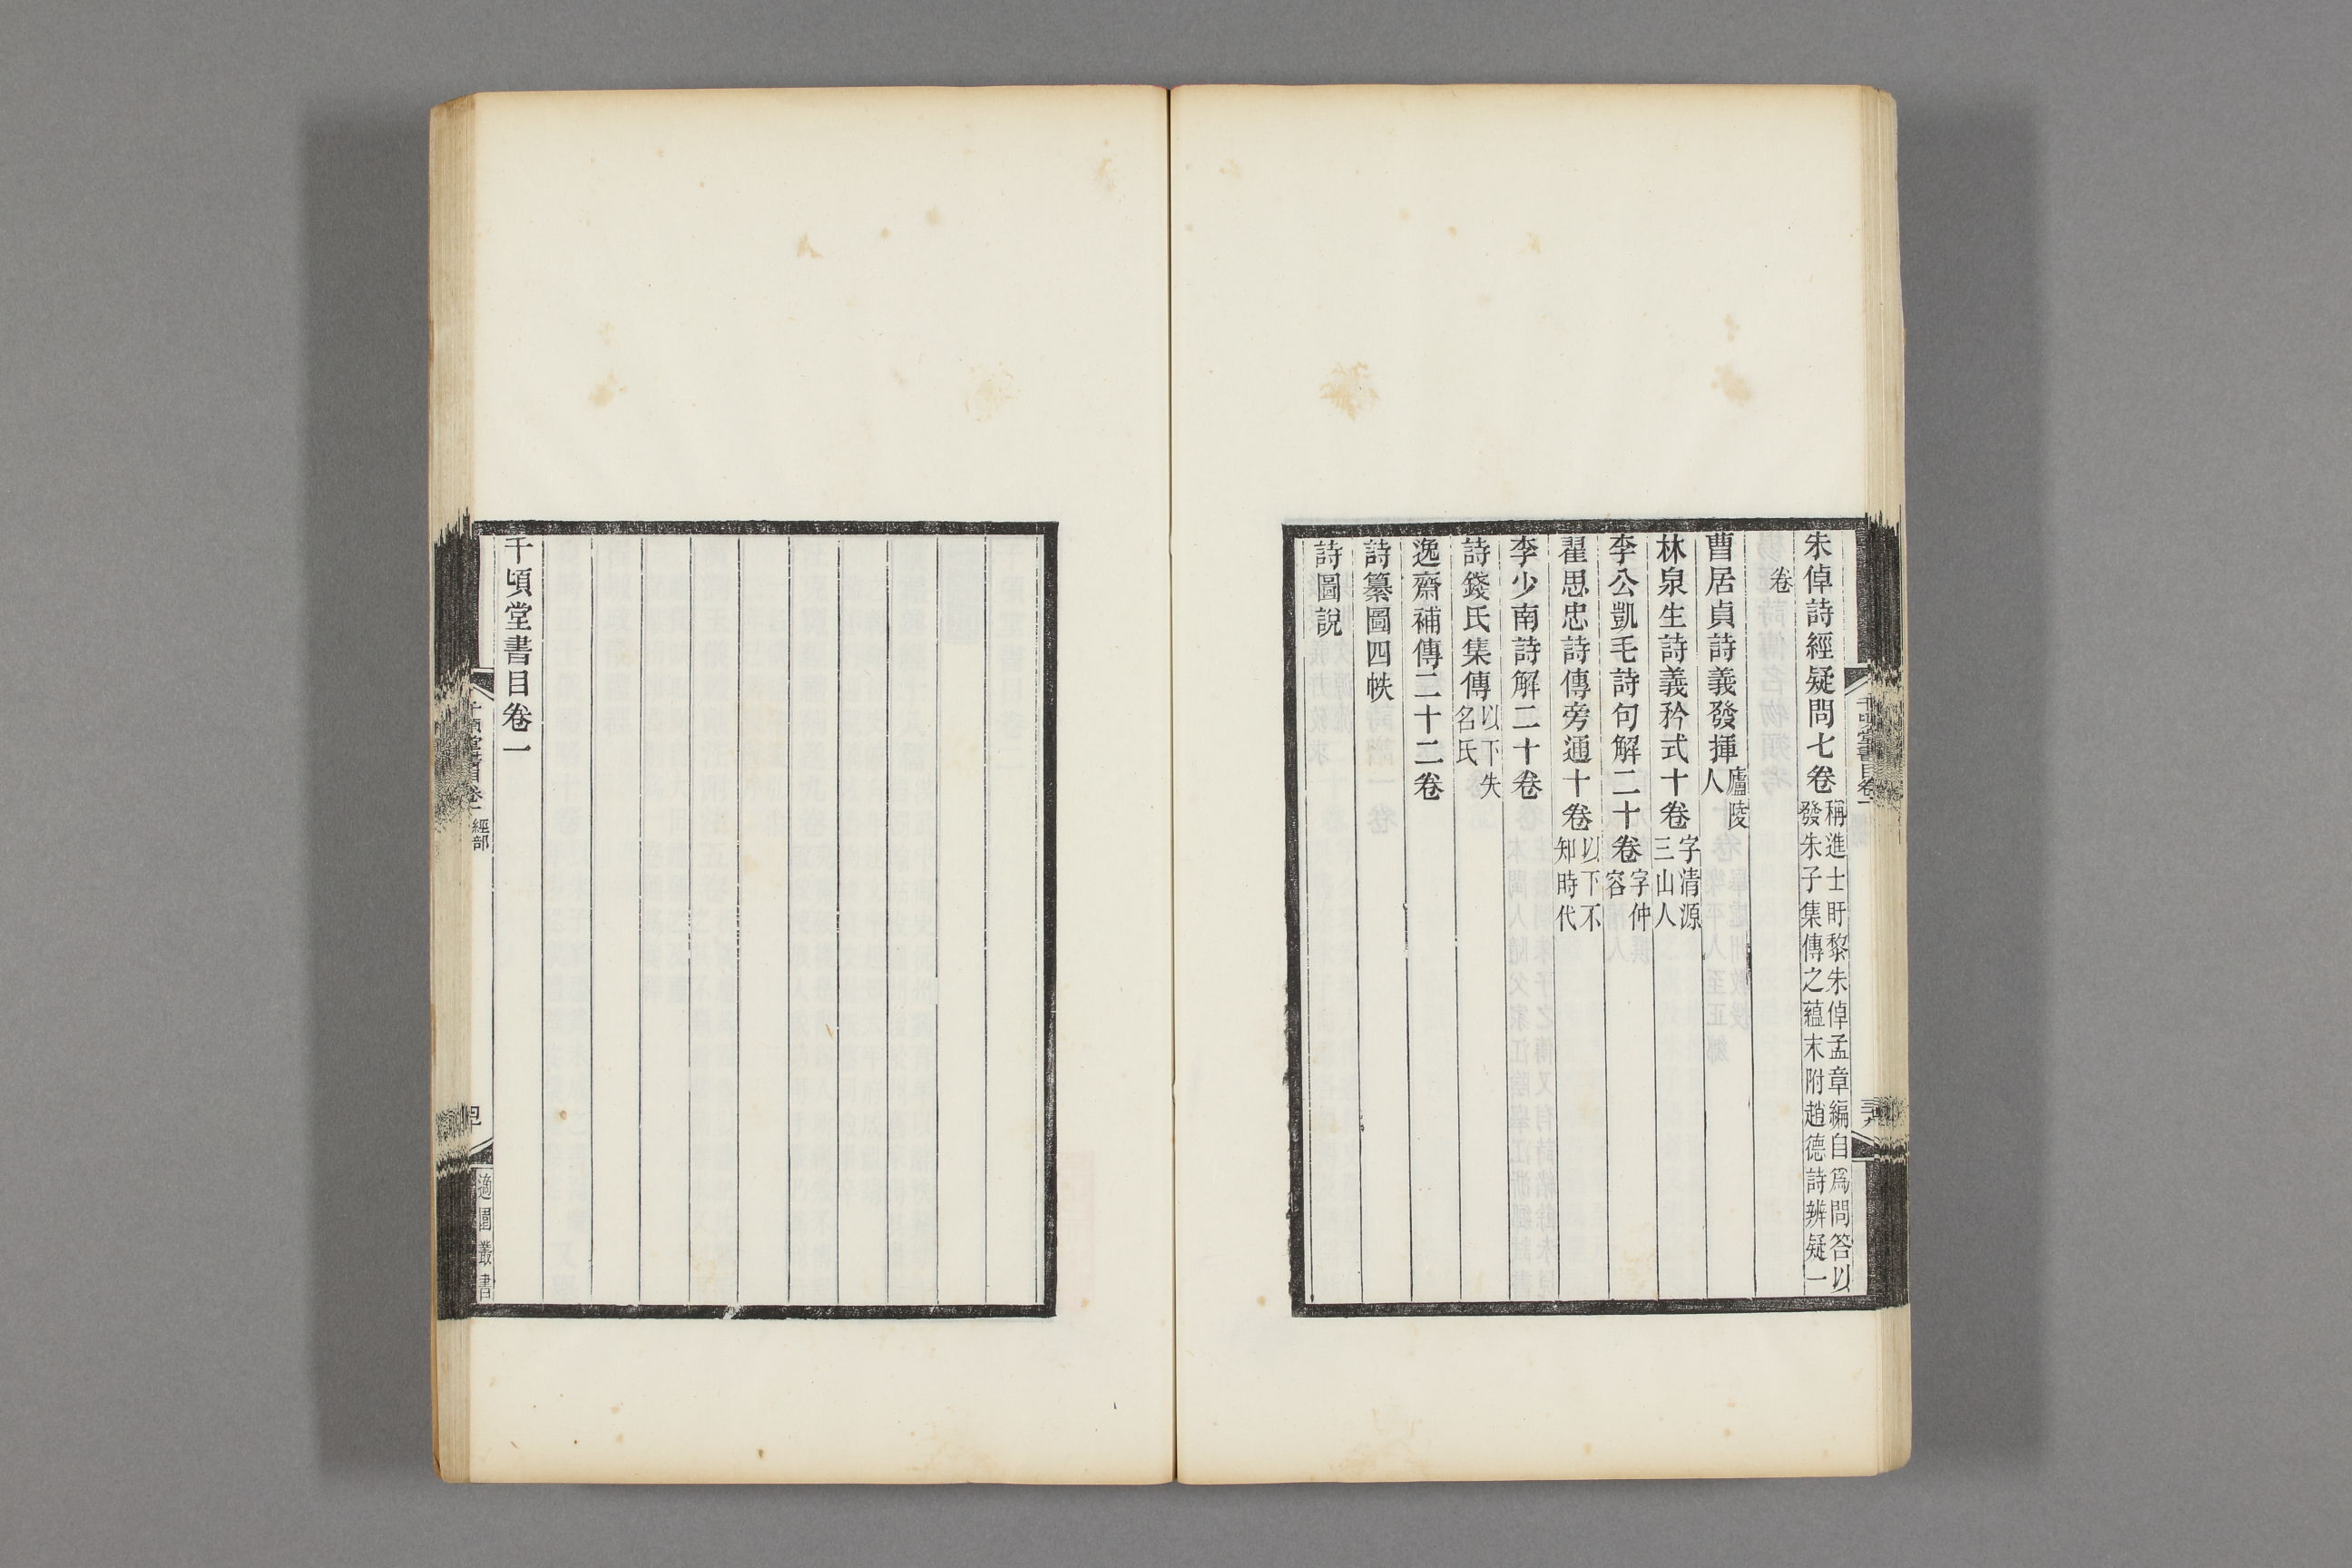 朱倬詩經疑問七卷稱進士盱黎朱倬孟章編自爲問答以發朱子集傳之蘊末附趙德詩辨疑一
卷
曹居貞詩義發揮廬陵人
林泉生詩義矜式十卷字清源三山人
李公凱毛詩句解二十卷字仲容
翟思忠詩傳旁通十卷以下不知時代
李少南詩解二十卷
詩錢氏集傳以下失名氏
逸齋補傳二十二卷
詩纂圖四帙
詩圖說
千頃堂書目卷一
千頃堂書目卷一
經部
適園叢書